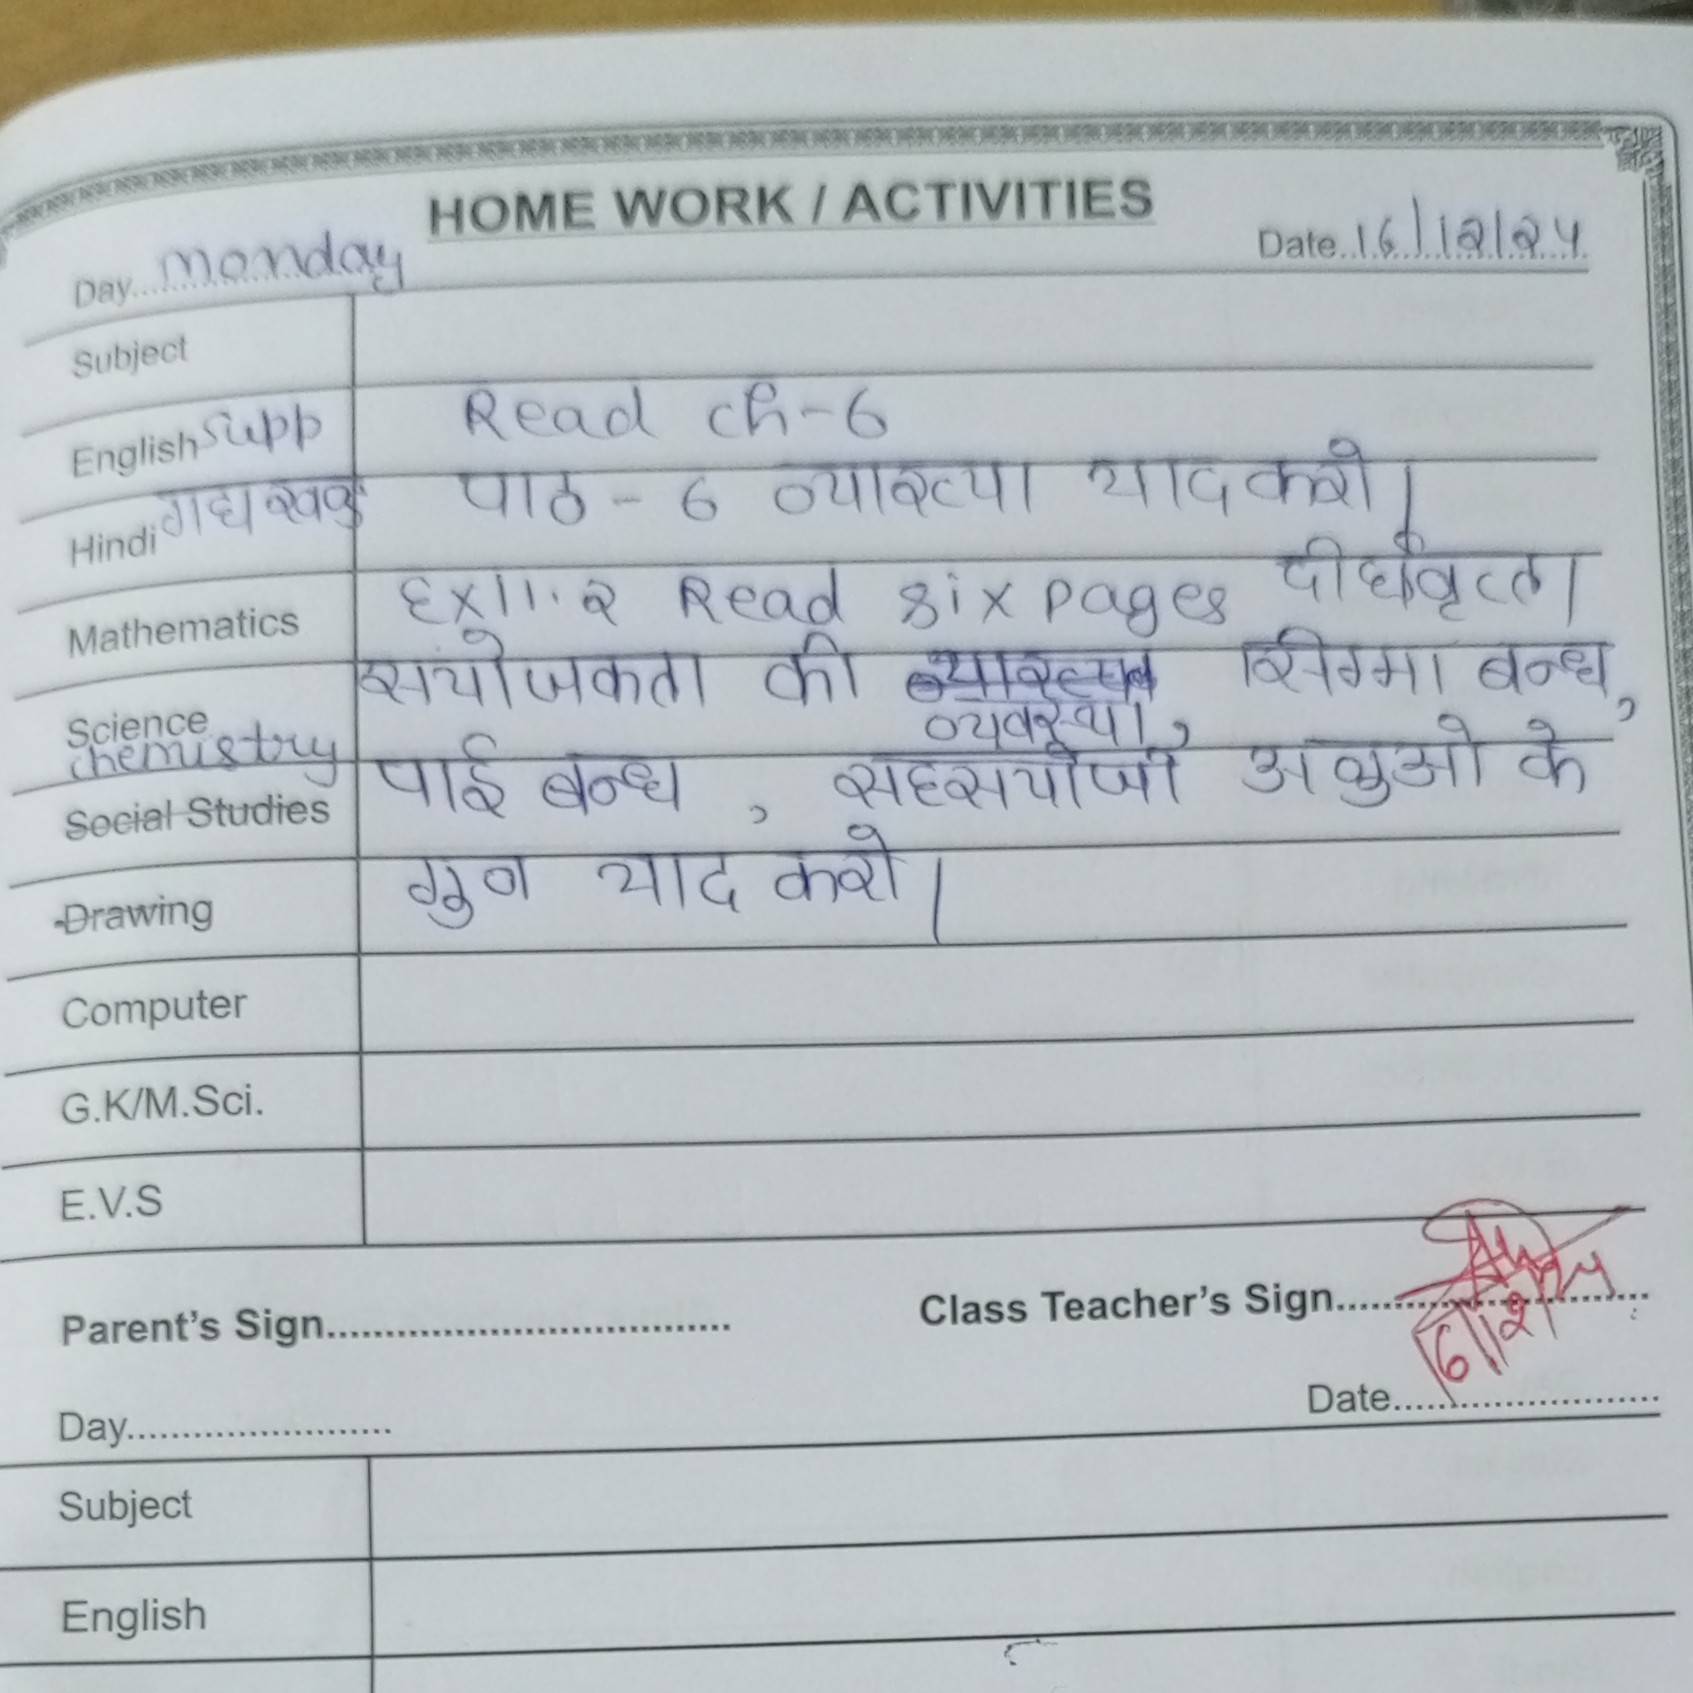 HOME WORK / ACTIVITIES
Day...monday Date..16/12/24
Subject
English supp Read ch-6
Hindi गद्य खण्ड पाठ - 6 व्याख्या याद करो।
Mathematics Ex 11.2 Read six pages दीर्घवृत्त।
Science संयोजकता की व्यवस्था, सिग्मा बन्ध,
chemistry
Social Studies पाई बन्ध, सहसयोजी अणुओ के
Drawing गुण याद करो।
Computer
G.K/M.Sci.
E.V.S
Parent's Sign.................................. Class Teacher's Sign..........................
16/12
Day........................ Date........................
Subject
English